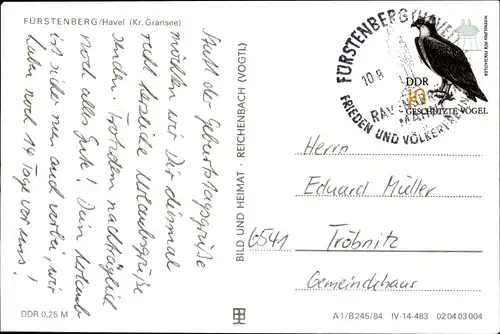 FÜRSTENBERG/Havel (Kr. Gransee)
Statt der Geburtstagsgrüße
möchten wir Dir diesmal
recht herzliche Urlaubsgrüße
senden. Trotzdem nachträglich
noch alles Gute! Dein Urlaub
ist sicher nun auch vorbei, wir
haben noch 14 Tage vor uns!
DDR 0,25 M
BILD UND HEIMAT · REICHENBACH (VOGTL)
FÜRSTENBERG (HAVEL)
10.8
FRIEDEN UND VÖLKER
DDR
10
GESCHÜTZTE VÖGEL
Herrn
Eduard Müller
6541 Tröbnitz
Gemeindehaus
A 1/B 245/84 IV-14-483 02 04 03 004